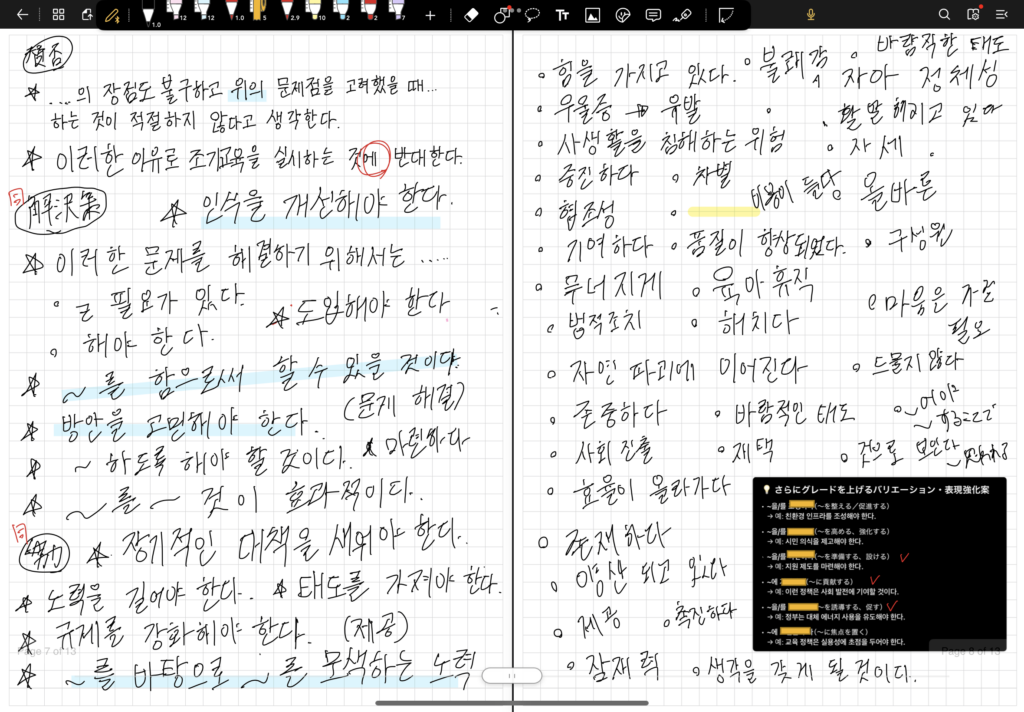 1.0 12 12 1.0 5 2.9 10 2 5 7
賛否
☆ ...의 장점도 불구하고 위의 문제점을 고려했을 때...
하는 것이 적절하지 않다고 생각한다.
☆ 이러한 이유로 조기교육을 실시하는 것에 반대한다.
解決策
☆ 인식을 개선해야 한다.
☆ 이러한 문제를 해결하기 위해서는 .....
필요가 있다.
☆ 도입해야 한다
해야 한다.
☆ ~를 함으로써 할 수 있을 것이다.
(문제 해결)
☆ 방안을 고민해야 한다.
☆ 마련하다
☆ ~하도록 해야 할 것이다.
☆ ~를 ~ 것이 효과적이다.
努力
☆ 장기적인 대책을 세워야 한다.
☆ 노력을 길어야 한다. ☆ 태도를 가져야 한다.
☆ 규제를 강화해야 한다. (제공)
☆ ~를 바탕으로 ~를 모색하는 노력
Page 7 of 13
힘을 가지고 있다. 불쾌감 바람직한 태도
자아 정체성
우울증 → 유발
사생활을 침해하는 위험 자세.
증진하다 차별
비용이 들다 올바른
협조성
기여하다 품질이 향상되었다. 구성원
무너지게 육아휴직
마음은 가질 필요
법적조치 해치다
자연 파괴에 이어진다 드물지 않다
존중하다 바람적인 태도 ~어야
することで
사회 진출 재택 것으로 보인다
~思われる
효율이 올라가다
존재하다
이 되고 있다
제공 촉진하다
잠재력 생각을 갖게 될 것이다.
💡 さらにグレードを上げるバリエーション・表現強化案
• ~을/를 (~を整える／促進する)
→ 예: 친환경 인프라를 조성해야 한다.
• ~을/를 (~を高める、強化する)
→ 예: 시민 의식을 제고해야 한다.
• ~을/를 (~を準備する、設ける)
→ 예: 지원 제도를 마련해야 한다.
• ~에 (~に貢献する)
→ 예: 이런 정책은 사회 발전에 기여할 것이다.
• ~을/를 (~を誘導する、促す)
→ 예: 정부는 대체 에너지 사용을 유도해야 한다.
• ~에 (~に焦点を置く)
→ 예: 교육 정책은 실용성에 초점을 두어야 한다.
Page 8 of 13